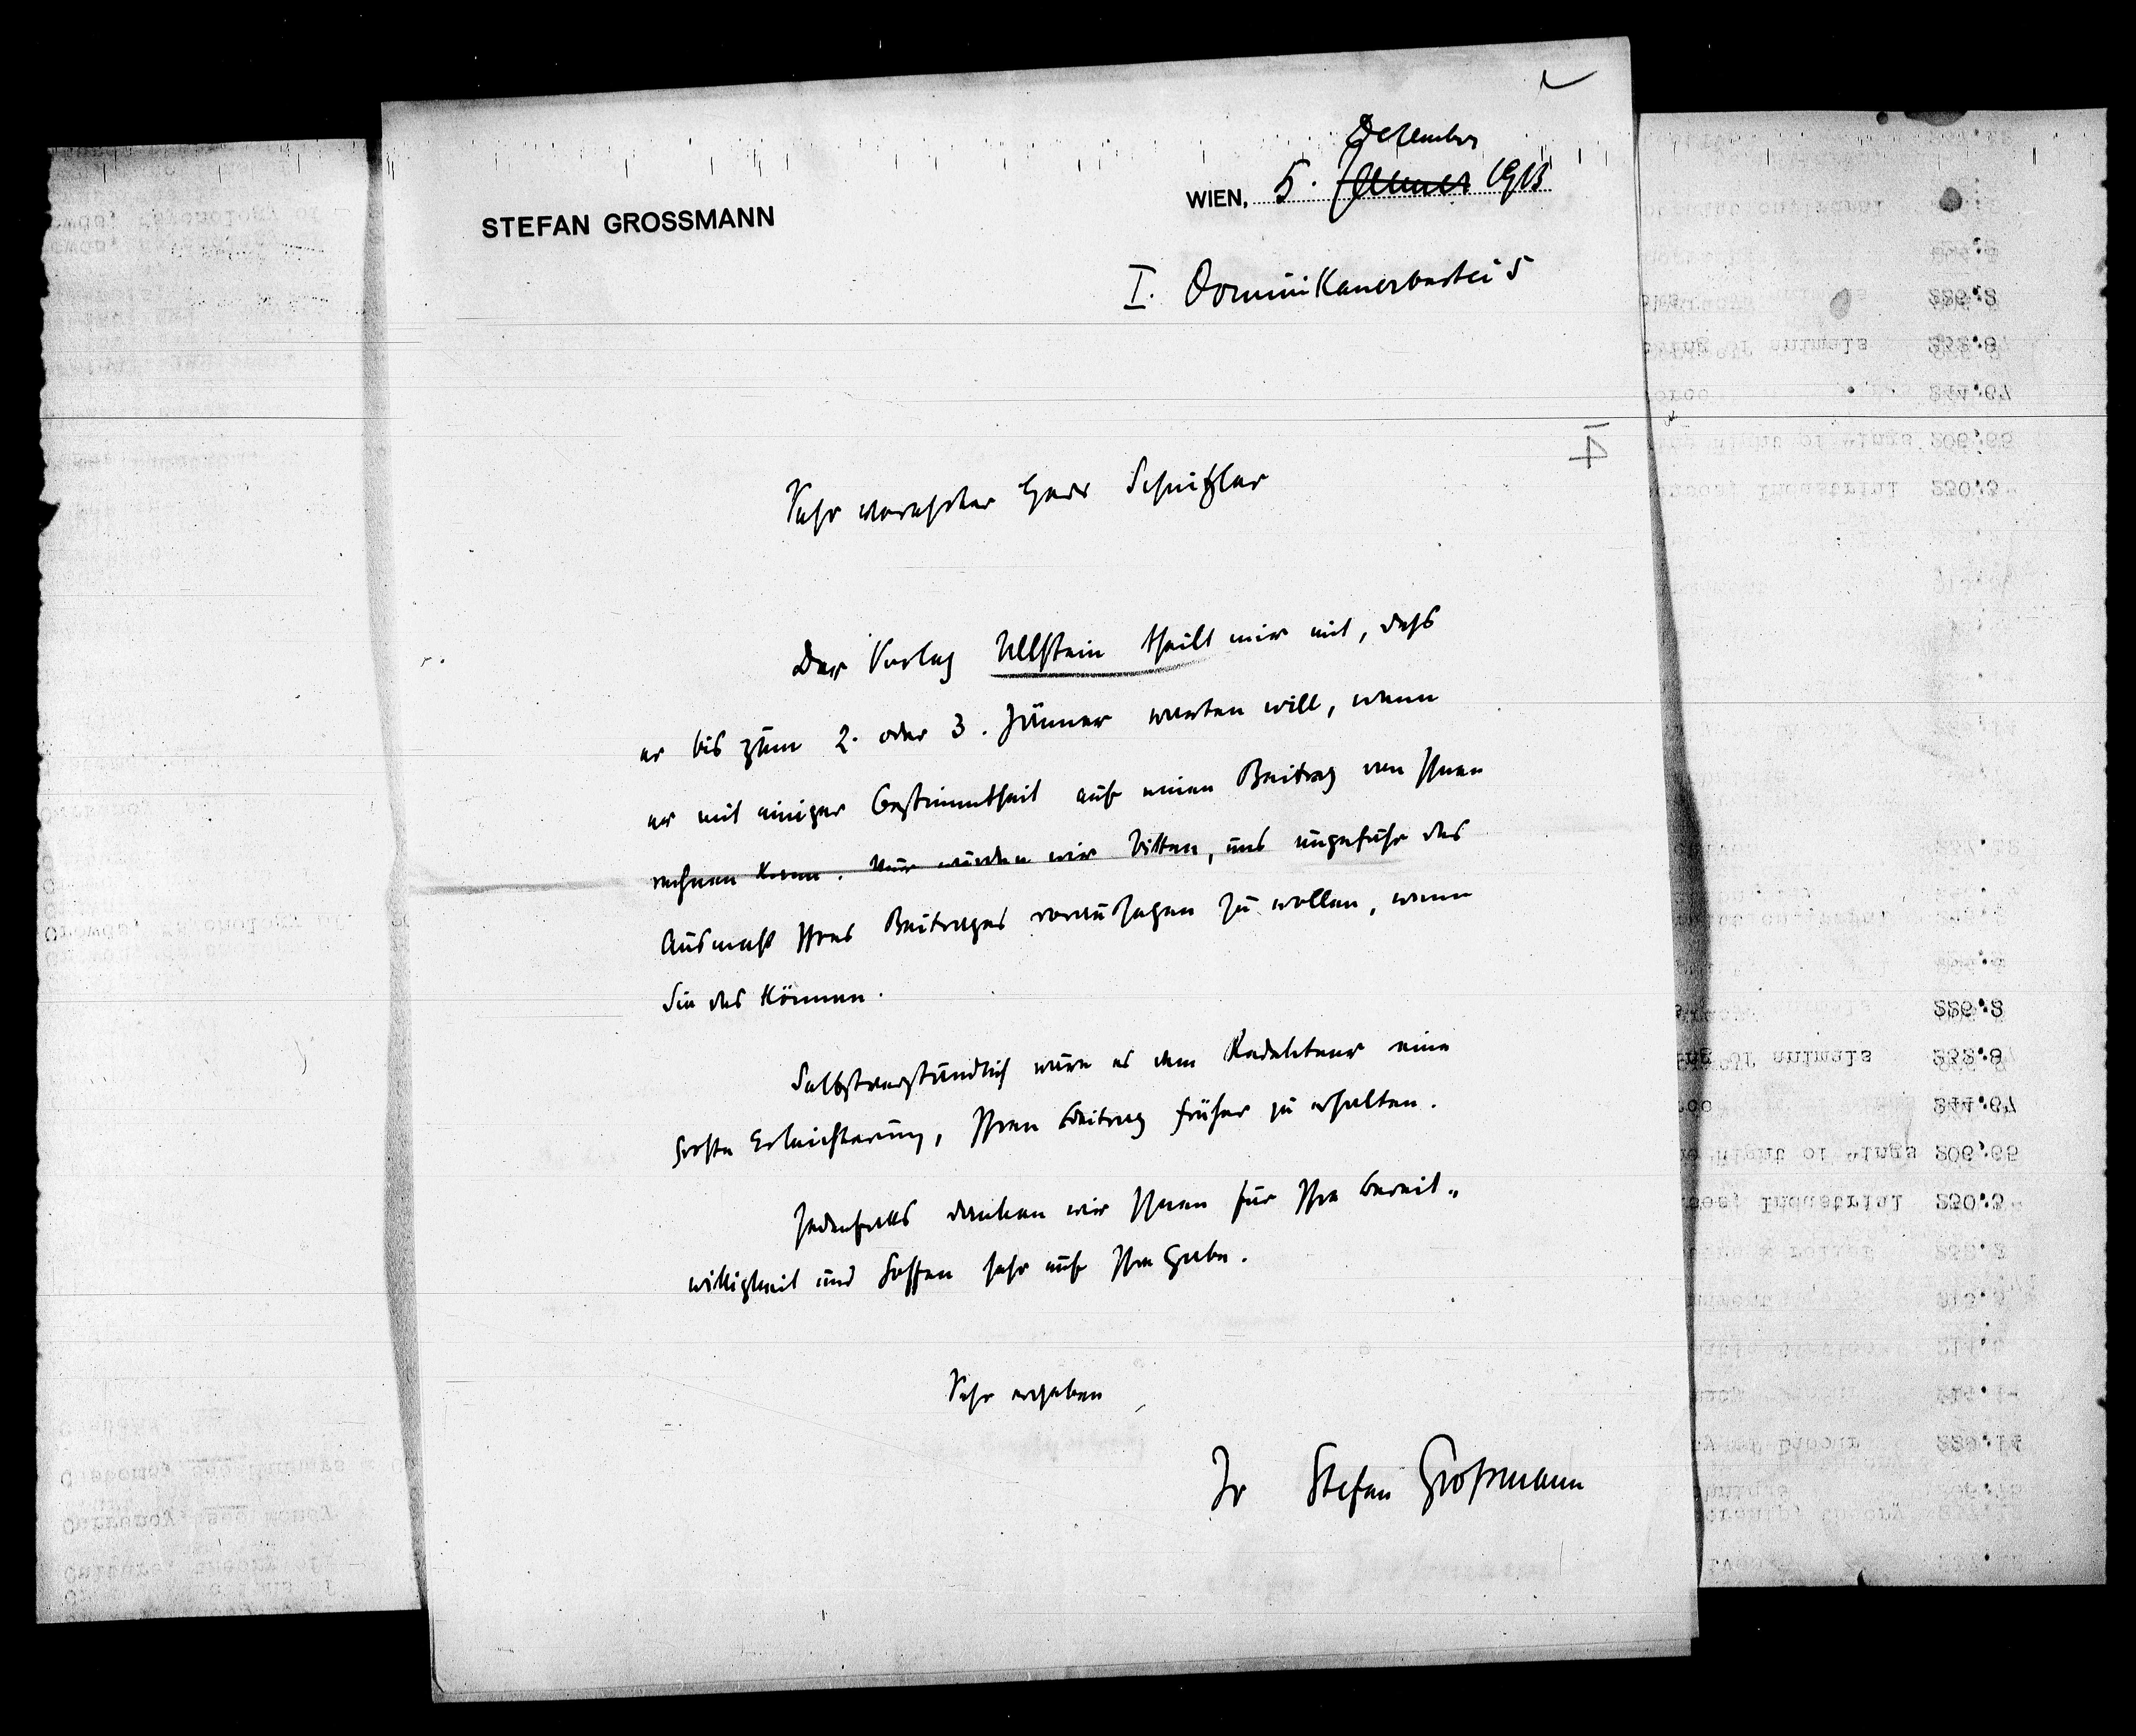 STEFAN GROSSMANN
Dezember
WIEN, 5. Jänner 1913
I. Dominikanerbastei 5
4
Sehr verehrter Herr Schnitzler
Der Verlag Ullstein theilt mir mit, daß
er bis zum 2. oder 3. Jänner warten will, wenn
er mit einiger Bestimmtheit auf einen Beitrag von Ihnen
rechnen kann. Nur würden wir bitten, uns ungefähr das
Ausmaß Ihres Beitrages voraussagen zu wollen, wenn
Sie das können.
Selbstverständlich wäre es dem Redakteur eine
große Erleichterung, Ihren Beitrag früher zu erhalten.
Jedenfalls danken wir Ihnen für Ihre Bereit-
willigkeit und hoffen sehr auf Ihre Gabe.
Sehr ergeben
Ihr Stefan Großmann
226.2
232.8
ing of animals
244.67
206.65
230.3
Industrial